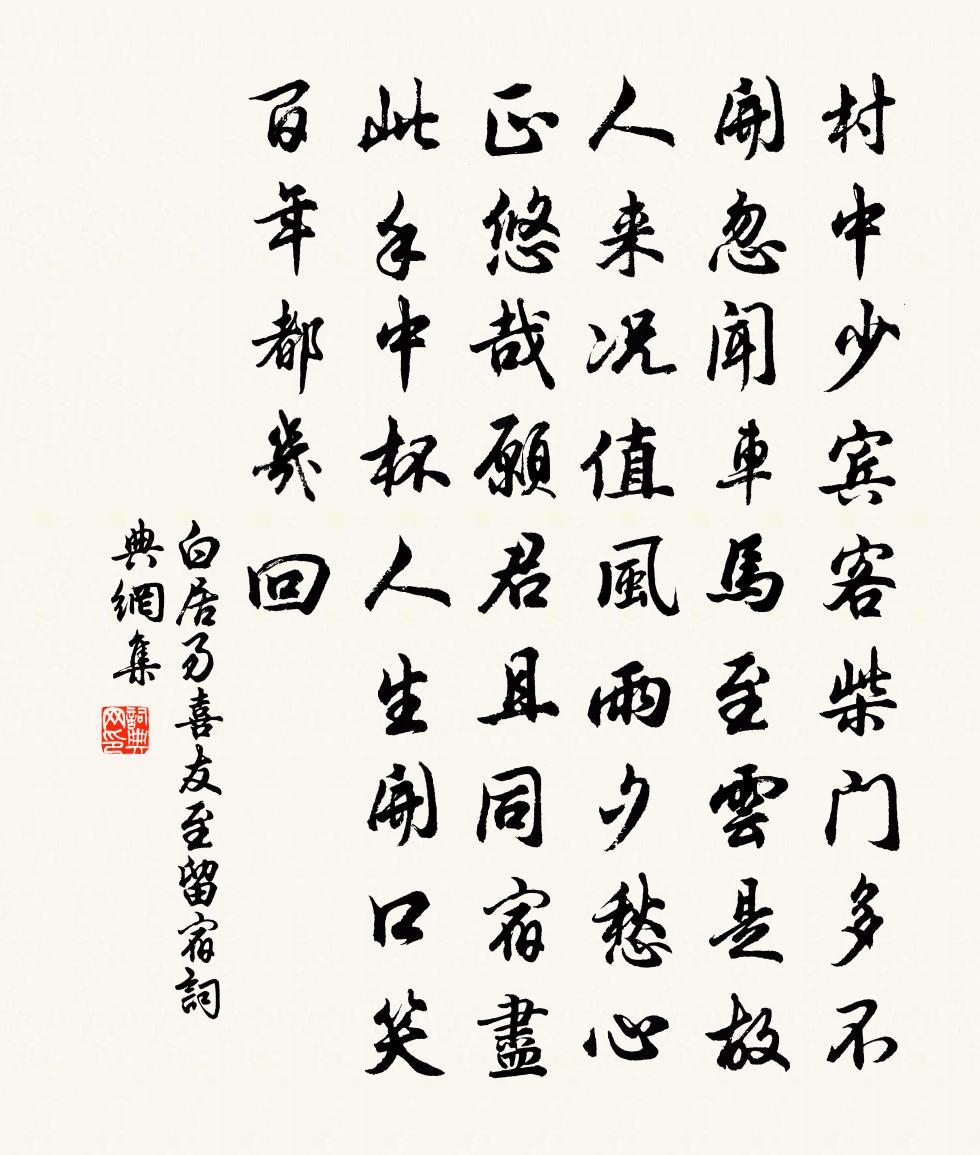 村中少宾客柴门多不
開忽聞車馬至雲是故
人来况值風雨夕愁心
正悠哉願君且同宿盡
此手中杯人生開口笑
百年都幾回
白居易喜友至留宿詞
典網集
詞典
网印